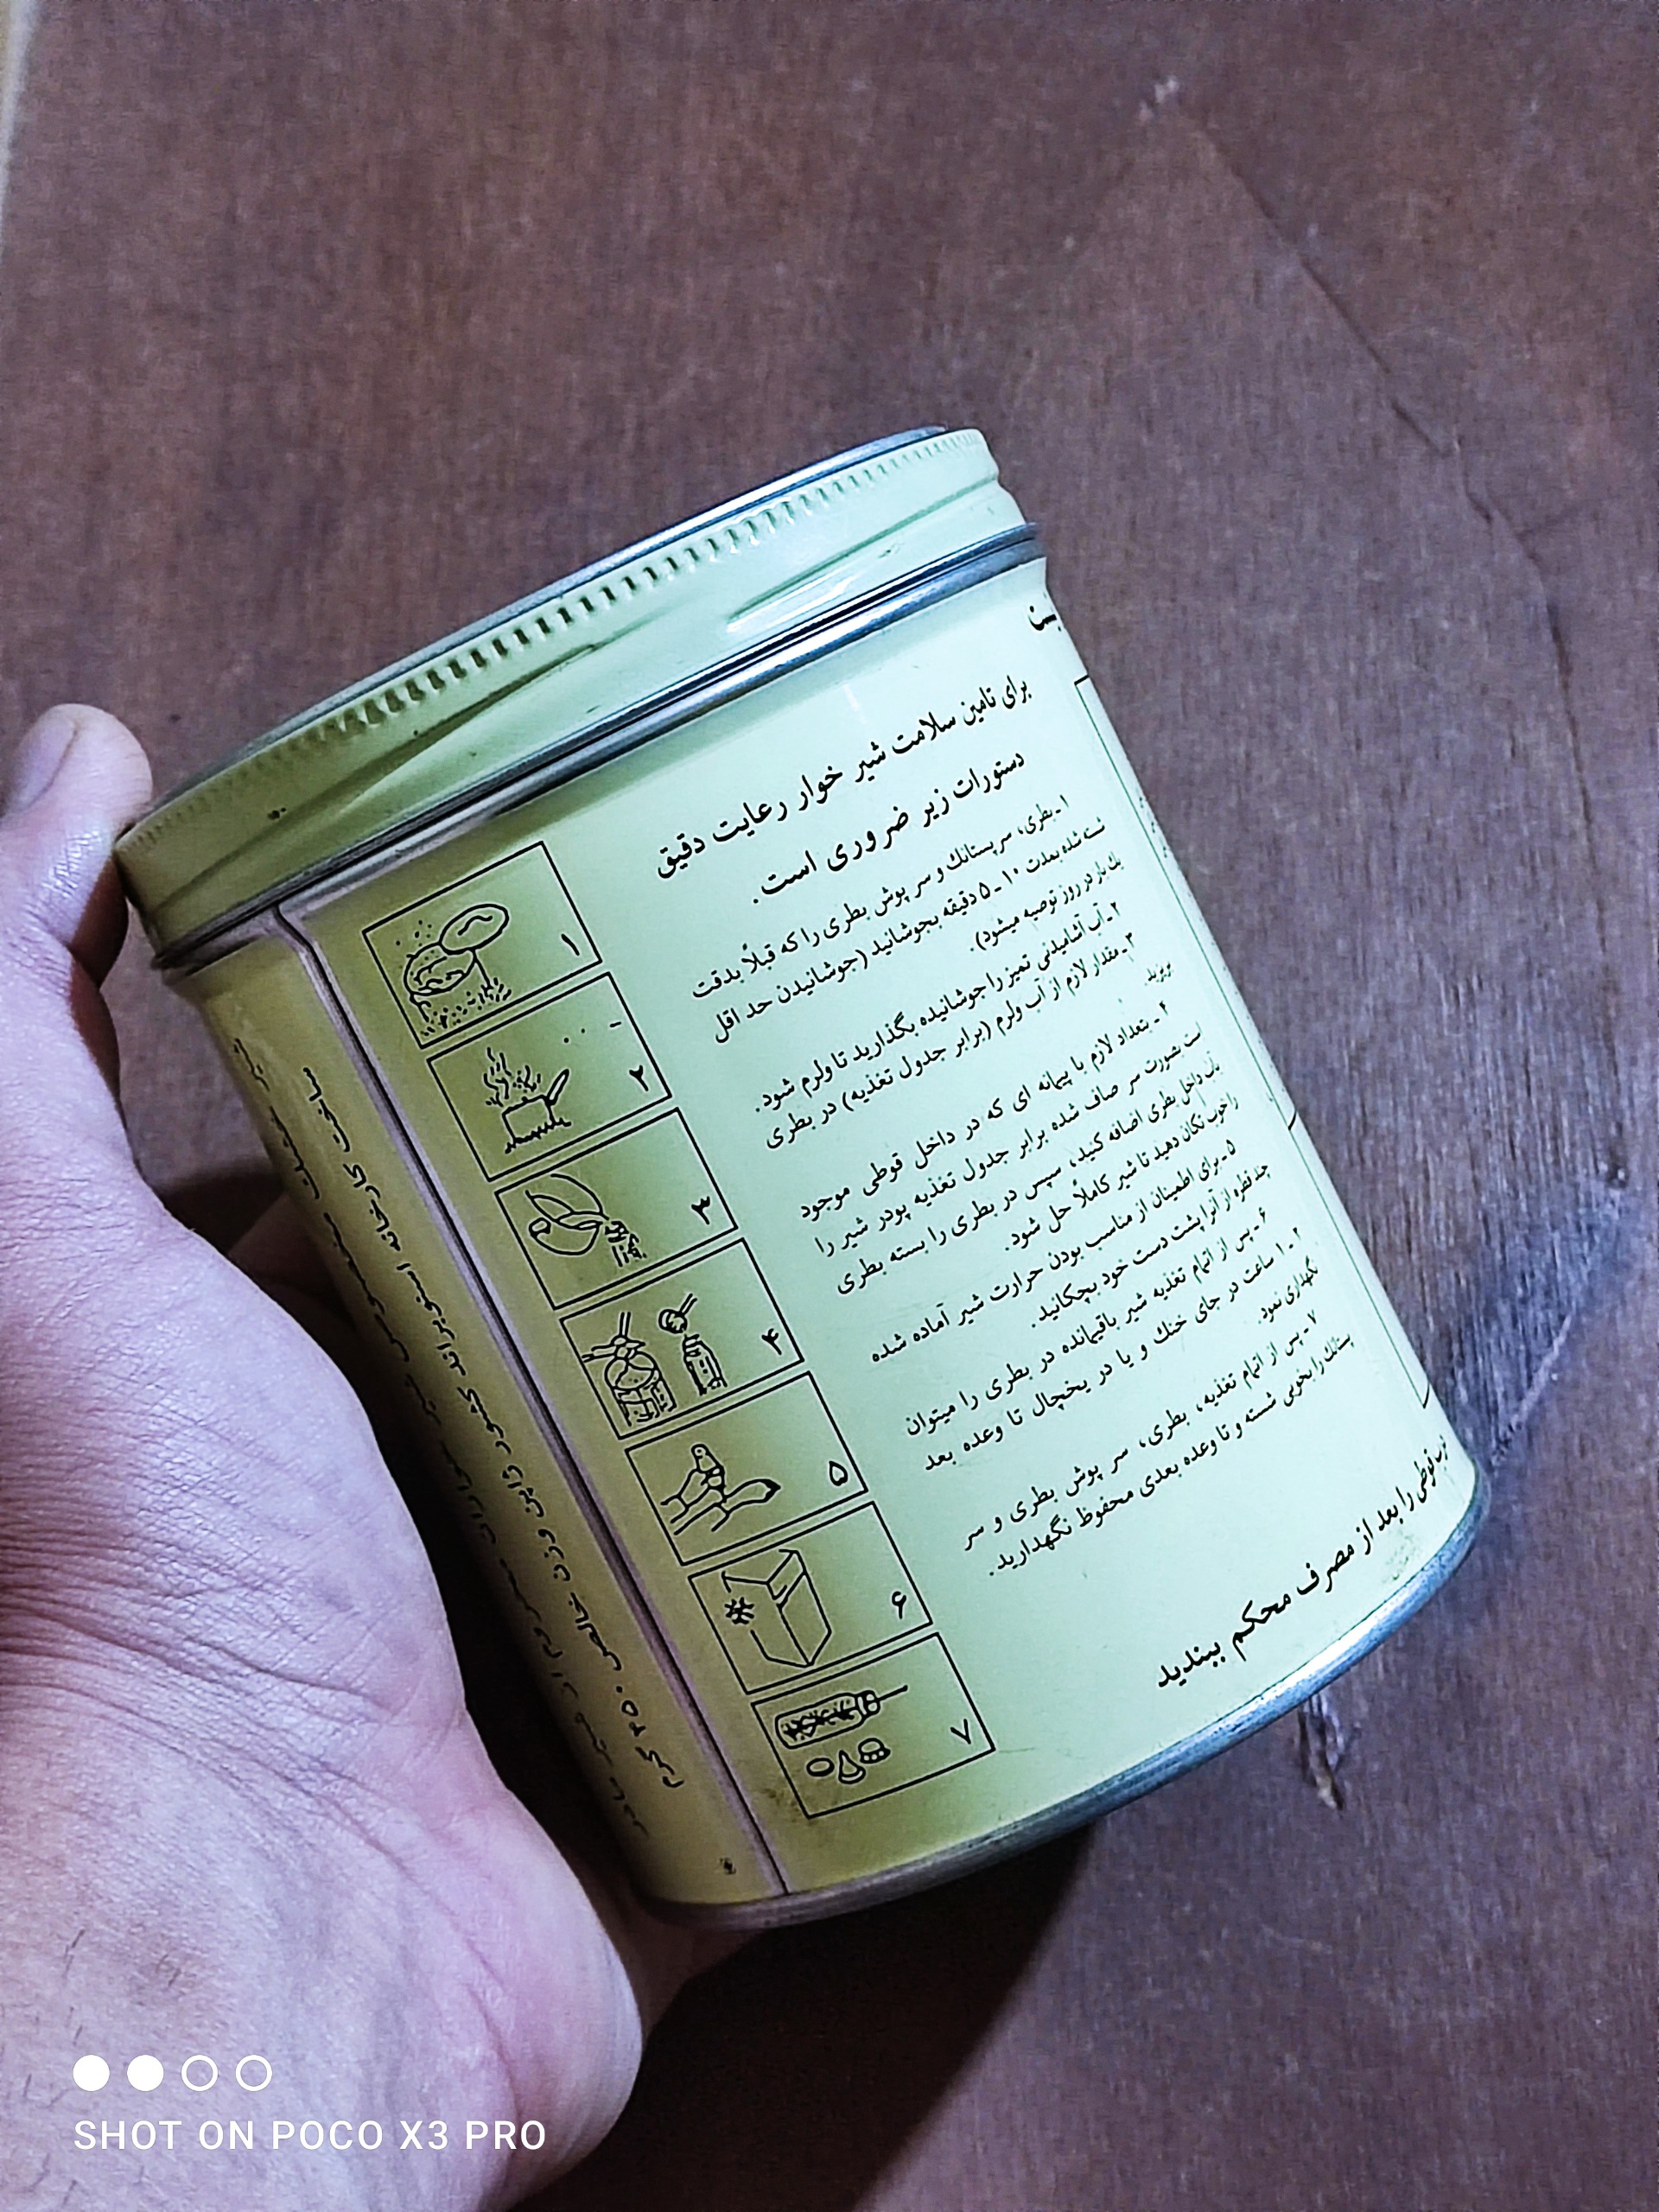 برای تامین سلامت شیر خوار رعایت دقیق
دستورات زیر ضروری است.
۱ـ بطری، سر پستانك و سر پوش بطری را که قبلاً بدقت
شسته شده بمدت ۱۰ ـ ۵ دقیقه بجوشانید (جوشانیدن حد اقل
یك بار در روز توصیه میشود).
۲ـ آب آشامیدنی تمیز را جوشانیده بگذارید تا ولرم شود.
۳ـ مقدار لازم از آب ولرم (برابر جدول تغذیه) در بطری
بریزید.
۴ـ بتعداد لازم با پیمانه ای که در داخل قوطی موجود
است بصورت سر صاف شده برابر جدول تغذیه پودر شیر را
بآب داخل بطری اضافه کنید، سپس در بطری را بسته بطری
را خوب تکان دهید تا شیر کاملاً حل شود.
۵ـ برای اطمینان از مناسب بودن حرارت شیر آماده شده
چند قطره از آنرا پشت دست خود بچکانید.
۶ـ پس از اتمام تغذیه شیر باقیمانده در بطری را میتوان
۲ ـ ۱ ساعت در جای خنك و یا در یخچال تا وعده بعد
نگهداری نمود.
۷ـ پس از اتمام تغذیه، بطری، سر پوش بطری و سر
پستانك را بخوبی شسته و تا وعده بعدی محفوظ نگهدارید.
درب قوطی را بعد از مصرف محکم ببندید
۱
۲
۳
۴
۵
۶
۷
ساخت کارخانه استوبراند کشور ژاپن وزن خالص ۴۵۰ گرم
SHOT ON POCO X3 PRO